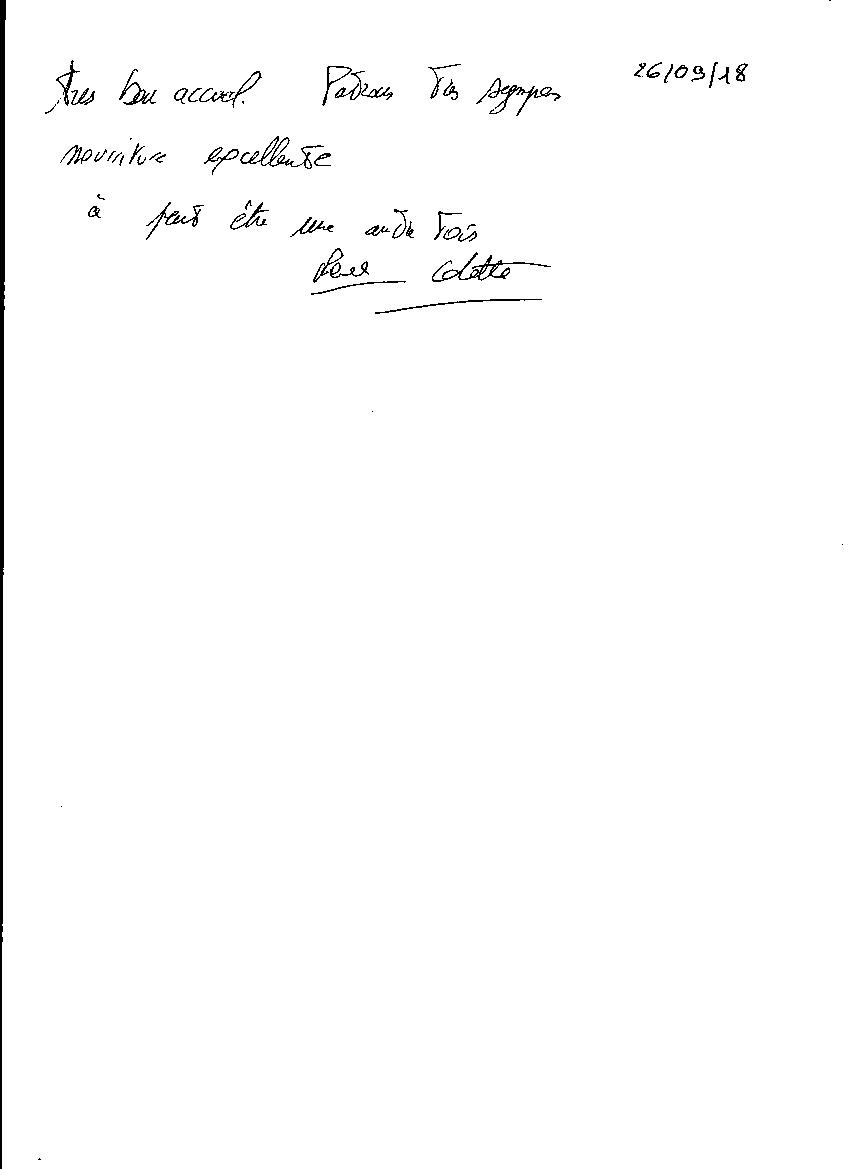 très bon accueil. Patrons très sympas 26/09/18
nourriture excellente
à peut être une autre fois
Colette